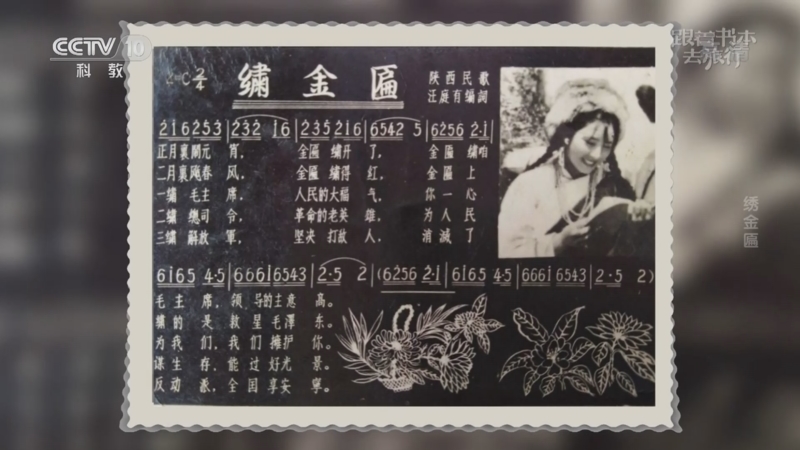 CCTV 10
科教
跟着书本
去旅行
绣金匾
2/4
繡金匾
陕西民歌
汪庭有编詞
2̇1̇6 2̇5̇3̇ | 2̇3̇2̇ 1̇6 | 2̇3̇5̇ 2̇1̇6 | 6542 5 | 6256 2·1̇ |
正月裏鬧元 宵， 金匾 繡开 了， 金匾 繡咱
二月裏颳春 风， 金匾 繡得 红， 金匾 上
一繡 毛主 席， 人民的大福 气， 你一心
二繡 總司 令， 革命的老英 雄， 为人民
三繡 解放 軍， 坚决 打敌 人， 消滅了
6165 4·5 | 6661 6543 | 2·5 2 | (6256 2·1 | 6165 4·5 | 6661 6543 | 2·5 2) |
毛 主 席，领 导的主意 高。
繡 的 是 救 星毛澤 东。
为 我 们，我 们 擁护 你。
谋 生 存，能 过好光 景。
反 动 派，全 国享安 寧。